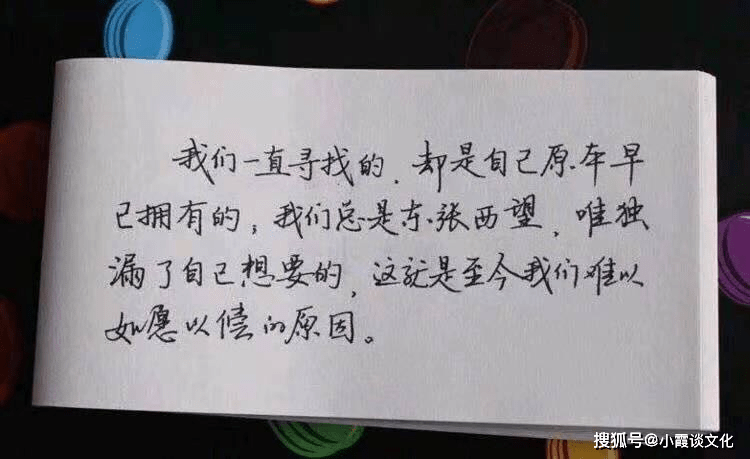 我们一直寻找的，却是自己原本早
已拥有的；我们总是东张西望，唯独
漏了自己想要的，这就是至今我们难以
如愿以偿的原因。
搜狐号@小霞谈文化